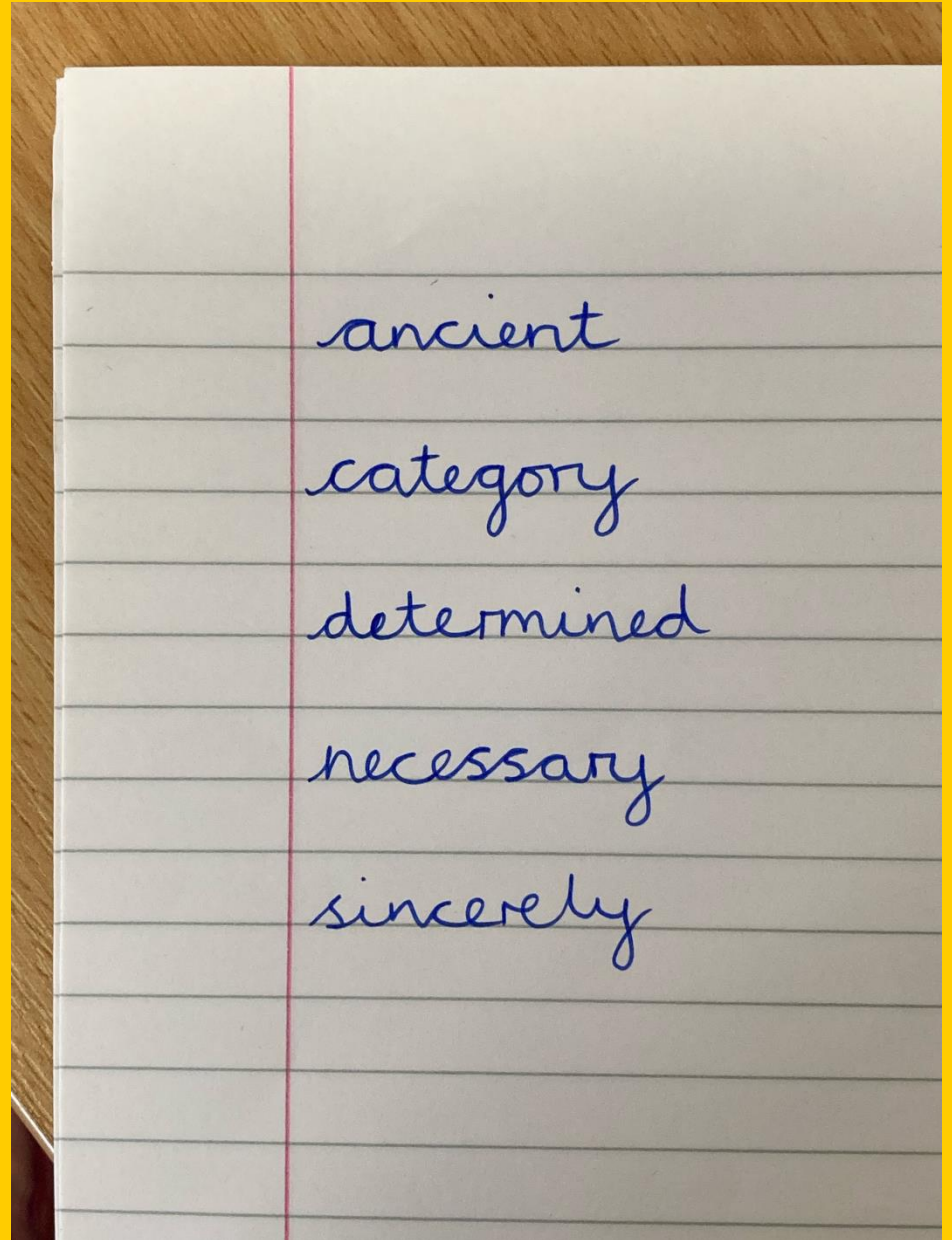 ancient
category
determined
necessary
sincerely